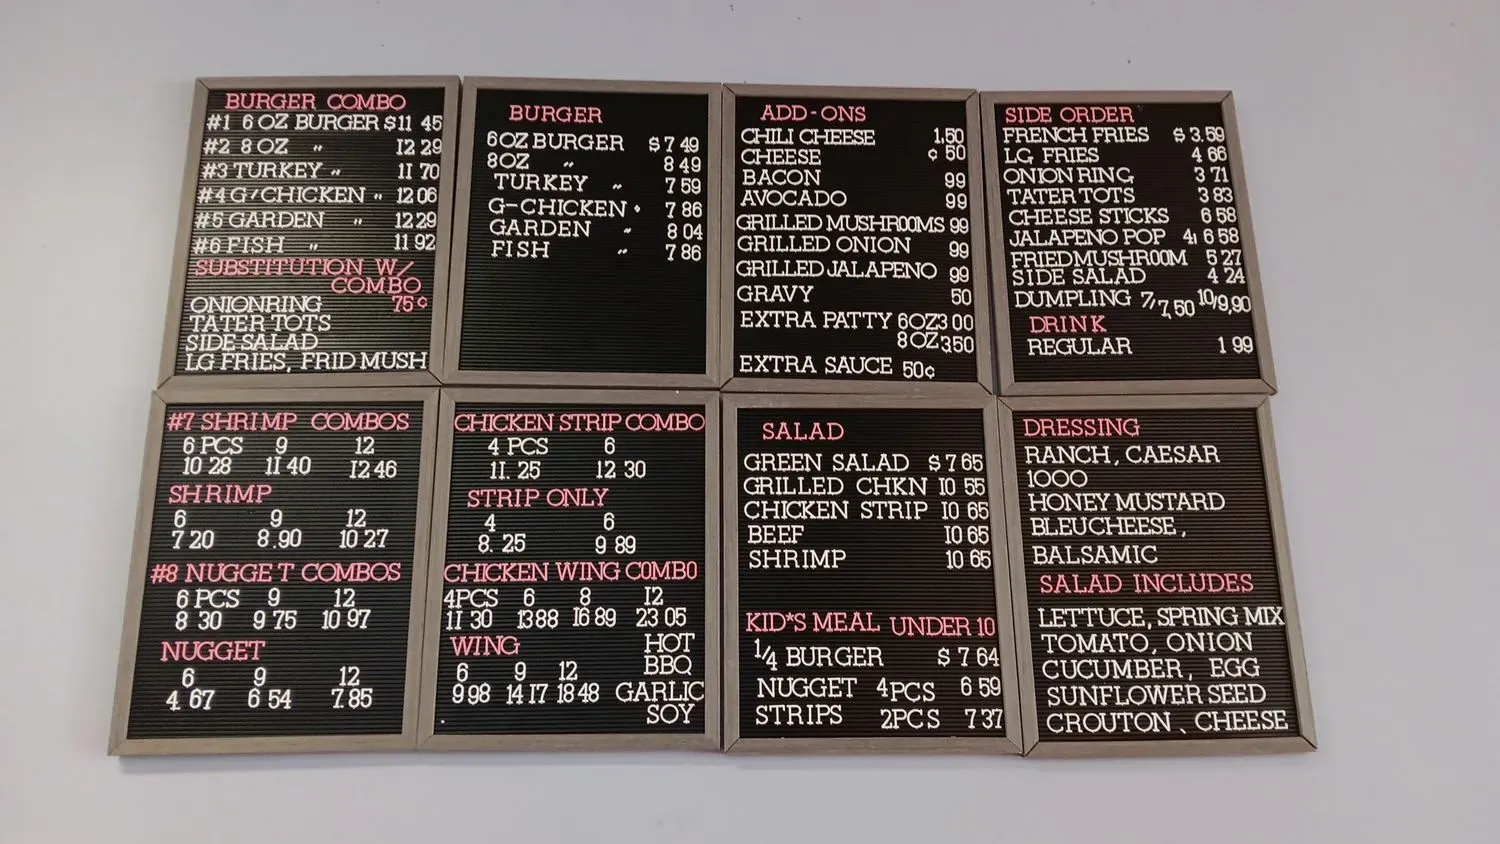 BURGER COMBO
#1 6 OZ BURGER $11 45
#2 8 OZ " 12 29
#3 TURKEY " 11 70
#4 G/CHICKEN " 12 06
#5 GARDEN " 12 29
#6 FISH " 11 92
SUBSTITUTION W/
COMBO
ONIONRING 75¢
TATER TOTS
SIDE SALAD
LG FRIES, FRID MUSH
BURGER
6OZ BURGER $ 7 49
8OZ " 8 49
TURKEY " 7 59
G-CHICKEN 7 86
GARDEN " 8 04
FISH " 7 86
ADD-ONS
CHILI CHEESE 1.50
CHEESE ¢ 50
BACON 99
AVOCADO 99
GRILLED MUSHROOMS 99
GRILLED ONION 99
GRILLED JALAPENO 99
GRAVY 50
EXTRA PATTY 6OZ 3 00
8 OZ 3.50
EXTRA SAUCE 50¢
SIDE ORDER
FRENCH FRIES $ 3.59
LG FRIES 4 66
ONION RING 3 71
TATER TOTS 3 83
CHEESE STICKS 6 58
JALAPENO POP 4, 6 58
FRIED MUSHROOM 5 27
SIDE SALAD 4 24
DUMPLING 7/7,50 10/9,90
DRINK
REGULAR 1 99
#7 SHRIMP COMBOS
6 PCS 9 12
10 28 11 40 12 46
SHRIMP
6 9 12
7 20 8.90 10 27
#8 NUGGET COMBOS
6 PCS 9 12
8 30 9 75 10 97
NUGGET
6 9 12
4 67 6 54 7.85
CHICKEN STRIP COMBO
4 PCS 6
11. 25 12 30
STRIP ONLY
4 6
8. 25 9 89
CHICKEN WING COMBO
4PCS 6 8 12
11 30 13 88 16 89 23 05
WING HOT
BBQ
6 9 12
9 98 14 17 18 48 GARLIC
SOY
SALAD
GREEN SALAD $ 7 65
GRILLED CHKN 10 55
CHICKEN STRIP 10 65
BEEF 10 65
SHRIMP 10 65
KID*S MEAL UNDER 10
1/4 BURGER $ 7 64
NUGGET 4PCS 6 59
STRIPS 2PCS 7 37
DRESSING
RANCH, CAESAR
1000
HONEY MUSTARD
BLEUCHEESE,
BALSAMIC
SALAD INCLUDES
LETTUCE, SPRING MIX
TOMATO, ONION
CUCUMBER, EGG
SUNFLOWER SEED
CROUTON, CHEESE